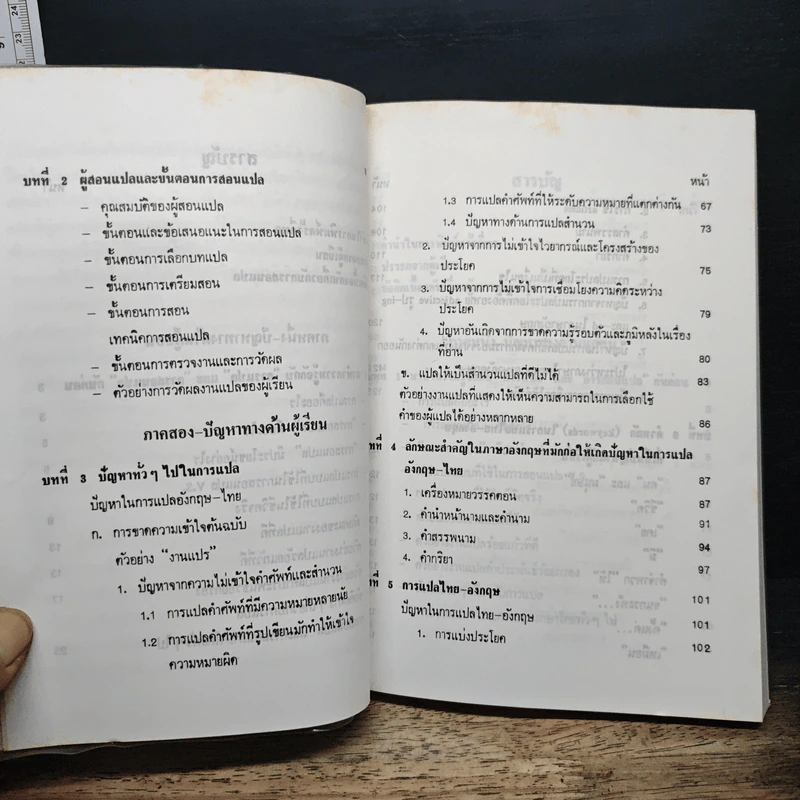 บทที่ 2 ผู้สอนแปลและขั้นตอนการสอนแปล
– คุณสมบัติของผู้สอนแปล
– ขั้นตอนและข้อเสนอแนะในการสอนแปล
– ขั้นตอนการเลือกบทแปล
– ขั้นตอนการเตรียมสอน
– ขั้นตอนการสอน
เทคนิคการสอนแปล
– ขั้นตอนการตรวจงานและการวัดผล
– ตัวอย่างการวัดผลงานแปลของผู้เรียน
ภาคสอง–ปัญหาทางด้านผู้เรียน
บทที่ 3 ปัญหาทั่วๆ ไปในการแปล
ปัญหาในการแปลอังกฤษ–ไทย
ก. การขาดความเข้าใจต้นฉบับ
ตัวอย่าง “งานแปร”
1. ปัญหาจากความไม่เข้าใจคำศัพท์และสำนวน
1.1 การแปลคำศัพท์ที่มีความหมายหลายนัย
1.2 การแปลคำศัพท์ที่รูปเขียนมักทำให้เข้าใจ
ความหมายผิด
หน้า
1.3 การแปลคำศัพท์ที่ให้ระดับความหมายที่แตกต่างกัน 67
1.4 ปัญหาทางด้านการแปลสำนวน 73
2. ปัญหาจากการไม่เข้าใจไวยากรณ์และโครงสร้างของ
ประโยค 75
3. ปัญหาจากการไม่เข้าใจการเชื่อมโยงความคิดระหว่าง
ประโยค 79
4. ปัญหาอันเกิดจากการขาดความรู้รอบตัวและภูมิหลังในเรื่อง
ที่อ่าน 80
ข. แปลให้เป็นสำนวนแปลที่ดีไม่ได้ 83
ตัวอย่างงานแปลที่แสดงให้เห็นความสามารถในการเลือกใช้
คำของผู้แปลได้อย่างหลากหลาย 86
ที่ 4 ลักษณะสำคัญในภาษาอังกฤษที่มักก่อให้เกิดปัญหาในการแปล
อังกฤษ–ไทย 87
1. เครื่องหมายวรรคตอน 87
2. คำนำหน้านามและคำนาม 91
3. คำสรรพนาม 94
4. คำกริยา 97
ที่ 5 การแปลไทย–อังกฤษ 101
ปัญหาในการแปลไทย–อังกฤษ 101
1. การแบ่งประโยค 102